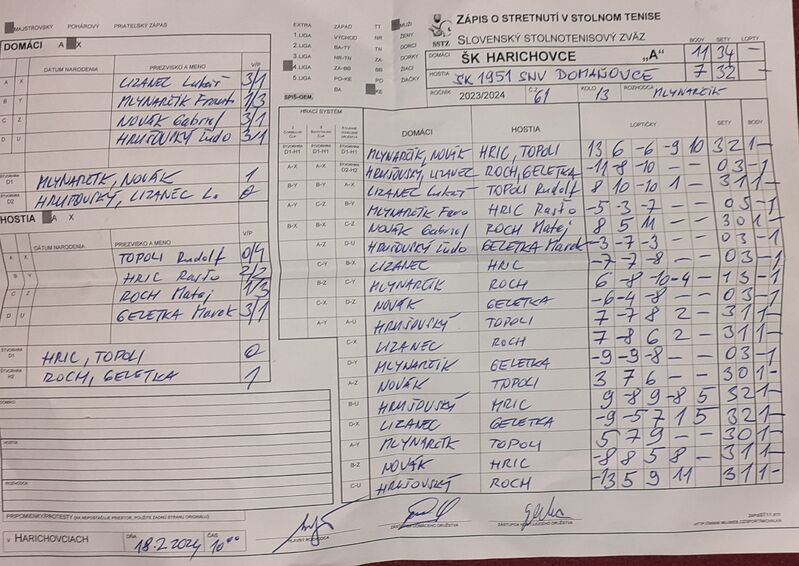 MAJSTROVSKÝ POHÁROVÝ PRIATEĽSKÝ ZÁPAS
DOMÁCI A X
DÁTUM NARODENIA PRIEZVISKO A MENO V/P
A X LIZANEC Lukáš 3/1
B Y MLYNARČÍK Frant. 1/3
C Z NOVÁK Gabriel 3/1
D U HRUŠOVSKÝ Ľudo 3/1
ŠTVORHRA D1 MLYNARČÍK, NOVÁK 1
ŠTVORHRA D2 HRUŠOVSKÝ, LIZANEC L. 0
HOSTIA A X
DÁTUM NARODENIA PRIEZVISKO A MENO V/P
A X TOPOLI Rudolf 0/4
B Y HRIC Rasťo 2/2
C Z ROCH Matej 1/3
D U GELETKA Marek 3/1
ŠTVORHRA H1 HRIC, TOPOLI 0
ŠTVORHRA H2 ROCH, GELETKA 1
DOMÁCI
HOSTIA
ROZHODCA
PRIPOMIENKY/PROTESTY (AK NEPOSTAČUJE PRIESTOR, POUŽITE ZADNÚ STRANU ORIGINÁLU)
V HARICHOVCIACH DŇA 18.2.2024 ČAS 10⁰⁰
HLAVNÝ ROZHODCA ZÁSTUPCA DOMÁCEHO DRUŽSTVA ZÁSTUPCA HOSŤUJÚCEHO DRUŽSTVA
EXTRA ZÁPAD TT MUŽI
1.LIGA VÝCHOD NR ŽENY
2.LIGA BA-TT TN DORCI
3.LIGA NR-TN ZA DORKY
4.LIGA ZA-BB BB ŽIACI
5.LIGA PO-KE PO ŽIAČKY
BA KE
SPIŠ-GEM.
SSTZ
ZÁPIS O STRETNUTÍ V STOLNOM TENISE
SLOVENSKÝ STOLNOTENISOVÝ ZVÄZ
BODY SETY LOPTY
DOMÁCI ŠK HARICHOVCE „A" 11 34 –
HOSTIA SK 1951 SNV DOMAŇOVCE 7 32 –
ROČNÍK 2023/2024 Č.Z. 61 KOLO 13 ROZHODCA MLYNARČÍK
HRACÍ SYSTÉM DOMÁCI HOSTIA LOPTIČKY SETY BODY
ŠTVORHRA D1-H1 MLYNARČÍK, NOVÁK HRIC, TOPOLI 13 6 -6 -9 10 3 2 1 –
A-X ŠTVORHRA D2-H2 HRUŠOVSKÝ, LIZANEC ROCH, GELETKA -11 -8 -10 – – 0 3 – 1
B-Y A-X LIZANEC Lukáš TOPOLI Rudolf 8 10 -10 1 – 3 1 1 –
A-Y C-Z B-Y MLYNARČÍK Fero HRIC Rasťo -5 -3 -7 – – 0 3 – 1
B-X B-X C-Z NOVÁK Gabriel ROCH Matej 8 5 11 – – 3 0 1 –
A-Z D-U HRUŠOVSKÝ Ľudo GELETKA Marek -3 -7 -3 – – 0 3 – 1
C-Y B-X LIZANEC HRIC -7 -7 -8 – – 0 3 – 1
B-Z C-Y MLYNARČÍK ROCH 6 -8 -10 -4 – 1 3 – 1
C-X D-Z NOVÁK GELETKA -6 -4 -8 – – 0 3 – 1
A-Y A-U HRUŠOVSKÝ TOPOLI 7 -7 8 2 – 3 1 1 –
C-X LIZANEC ROCH 7 -8 6 2 – 3 1 1 –
D-Y MLYNARČÍK GELETKA -9 -9 -8 – – 0 3 – 1
A-Z NOVÁK TOPOLI 3 7 6 – – 3 0 1 –
B-U HRUŠOVSKÝ HRIC 9 -8 9 -8 5 3 2 1 –
D-X LIZANEC GELETKA -9 -5 7 1 5 3 2 1 –
A-Y MLYNARČÍK TOPOLI 5 7 9 – – 3 0 1 –
B-Z NOVÁK HRIC -8 8 5 8 – 3 1 1 –
C-U HRUŠOVSKÝ ROCH -13 5 9 11 3 1 1 –